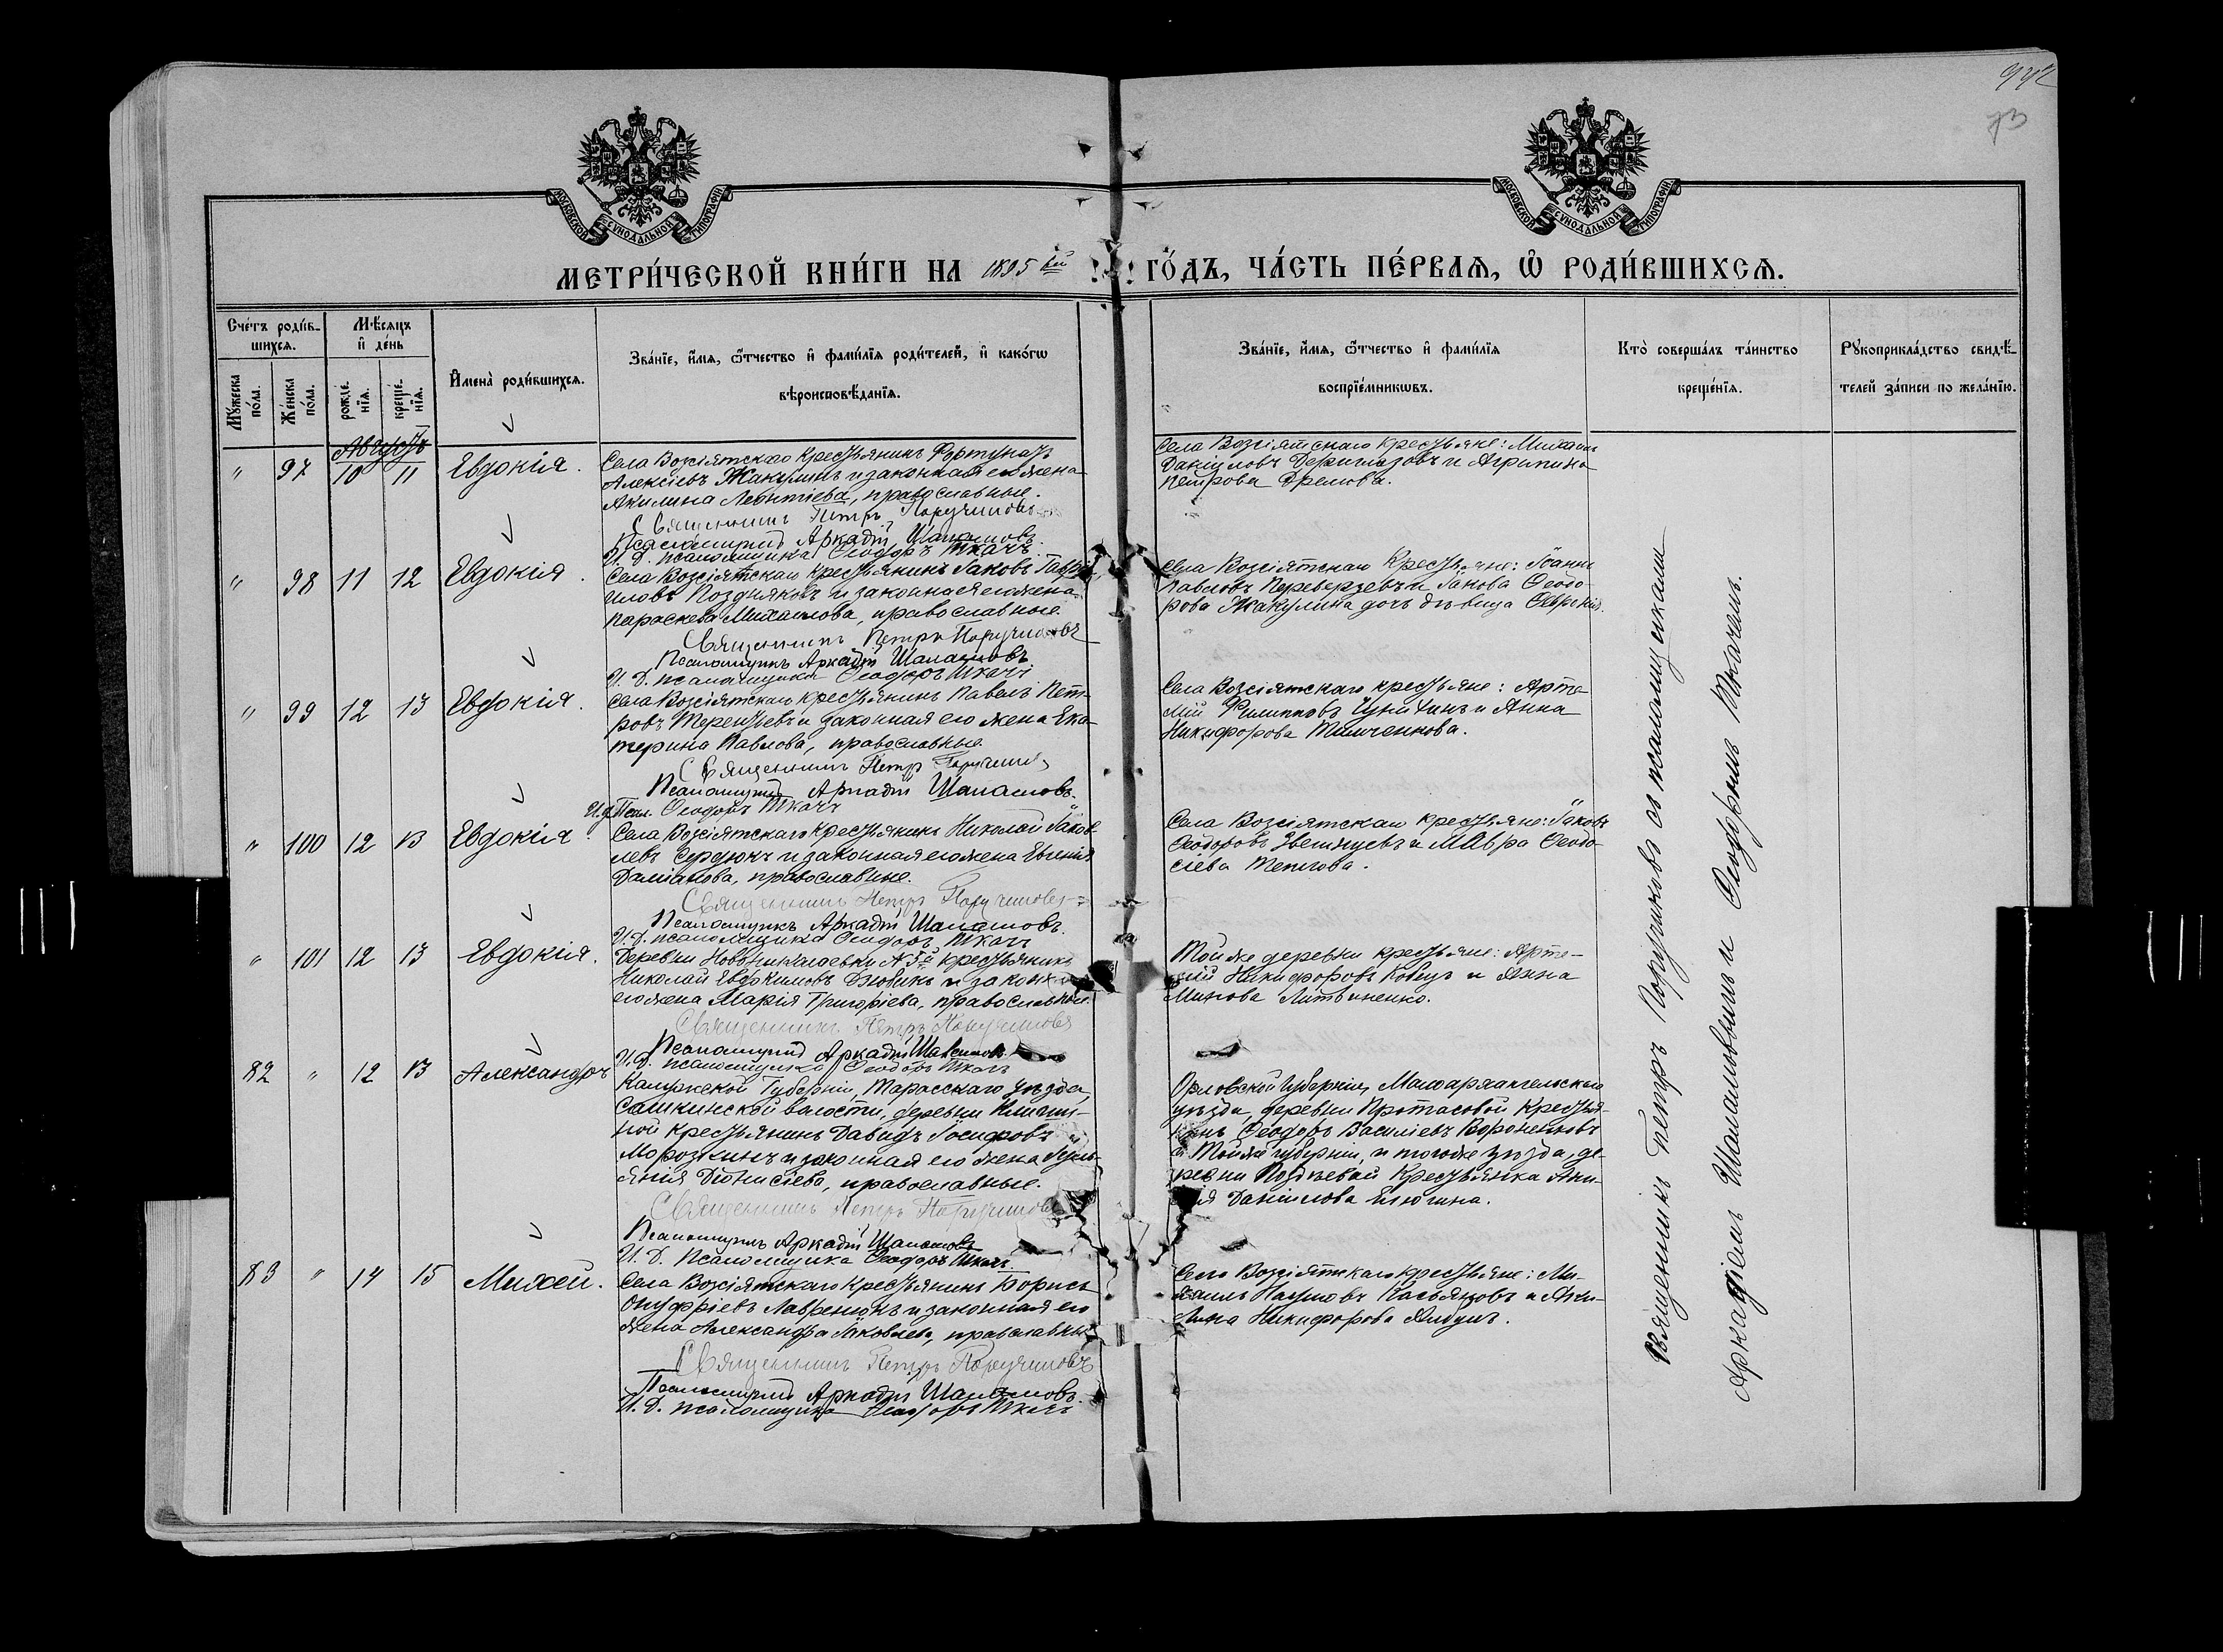 942
73
МОСКОВСКОЙ СѴНОДАЛЬНОЙ ТИПОГРАФІИ
МОСКОВСКОЙ СѴНОДАЛЬНОЙ ТИПОГРАФІИ
МЕТРИ́ЧЕСКОЙ КНИ́ГИ НА 1895 ый
ГО́ДЪ, ЧА́СТЬ ПЕ́РВАЯ, Ѡ҆ РОДИ́ВШИХСЯ.
Сче́тъ роди́в-
шихся.
Му́жеска по́ла.
Же́нска по́ла.
Мѣ́сяцъ
и҆ де́нь
рожде́-
нїя.
креще́-
нїя.
И҆мена̀ роди́вшихся.
Зва́нїе, и҆́мя, ѻ҆́тчество и҆ фами́лїя роди́телей, и҆ како́гѡ
вѣроисповѣ́данїя.
Зва́нїе, и҆́мя, ѻ҆́тчество и҆ фами́лїя
воспрїе́мникѡвъ.
Кто̀ соверша́лъ та́инство
креще́нїя.
Рꙋкоприкла́дство свидѣ́-
телей за́писи по жела́нїю.
Августъ
" 97 10 11 Евдокія.
Села Возсіятскаго крестьянинъ Фортунатъ
Алексіевъ Жакулинъ и законная его жена
Акилина Леонтіева, православные.
Священникъ Петръ Поручиковъ
Псаломщикъ Аркадій Шаламовъ.
И. Д. псаломщика Ѳеодоръ Ткачъ.
Села Возсіятскаго крестьяне: Михаилъ
Даніиловъ Дериглазовъ и Агрипина
Петрова Дремова.
" 98 11 12 Евдокія.
Села Возсіятскаго крестьянинъ Іаковъ Гаврі-
иловъ Поздняковъ и законная его жена
Параскева Михаилова, православные
Священникъ Петръ Поручиковъ
Псаломщикъ Аркадій Шаламовъ
И. Д. псаломщика Ѳеодоръ Ткачъ
Села Возсіятскаго крестьяне: Іоаннъ
Павловъ Переверзевъ и Іакова Ѳеодо-
рова Жакулина дочь дѣвица
" 99 12 13 Евдокія.
Села Возсіятскаго крестьянинъ Павелъ Пет-
ровъ Терентьевъ и законная его жена Ека-
терина Павлова, православные
Священникъ Петръ Поручиковъ
Псаломщикъ Аркадій Шаламовъ.
И. д. Псал. Ѳеодоръ Ткачъ
Села Возсіятскаго крестьяне: Арте-
мій Филипповъ и Анна
Никифорова Тимченкова.
" 100 12 13 Евдокія.
Села Возсіятскаго крестьянинъ Николай Іаков-
левъ Сердюкъ и законная его жена Евгенія
Даміанова, православные.
Священникъ Петръ Поручиковъ
Псаломщикъ Аркадій Шаламовъ.
И. Д. псаломщика Ѳеодоръ Ткачъ
Села Возсіятскаго крестьяне: Іаковъ
Ѳеодоровъ Звегинцевъ и Мавра Ѳеодо-
сіева
" 101 12 13 Евдокія.
Деревни Новониколаевки № 3й крестьянинъ
Николай Евдокимовъ и законная
его жена Марія Григоріева, православные.
Священникъ Петръ Поручиковъ
Псаломщикъ Аркадій Шаламовъ
И. Д. псаломщика Ѳеодоръ Ткачъ
Той же деревни крестьяне: Арте-
мій Никифоровъ и Анна
Минова Литвиненко.
82 " 12 13 Александръ
Калужской Губерніи, Тарасскаго уѣзда,
Сашкинской волости, деревни
крестьянинъ Давидъ Іосифовъ
Морозкинъ и законная его жена
Діонисіева, православные.
Священникъ Петръ Поручиковъ
Псаломщикъ Аркадій Шаламовъ
И. Д. Псаломщика Ѳеодоръ Ткачъ.
Орловской Губерніи, Малоархангельскаго
уѣзда, деревни Протасовой крестья-
нинъ Ѳеодоръ Василіевъ Вороненковъ
и Той же губерніи, и того же уѣзда, де-
ревни крестьянка
Даніилова
83 " 14 15 Михей.
Села Возсіятскаго крестьянинъ Борисъ
Онуфріевъ Лавренюкъ и законная его
жена Александра Іаковлева, православные
Священникъ Петръ Поручиковъ
Псаломщикъ Аркадій Шаламовъ.
И. Д. псаломщика Ѳеодоръ Ткачъ
Села Возсіятскаго крестьяне: Ми-
хаилъ Наумовъ Касьяновъ и Аки-
лина Никифорова
Священникъ Петръ Поручиковъ съ псаломщиками
Аркадіемъ Шаламовымъ и Ѳеодоромъ Ткачемъ.